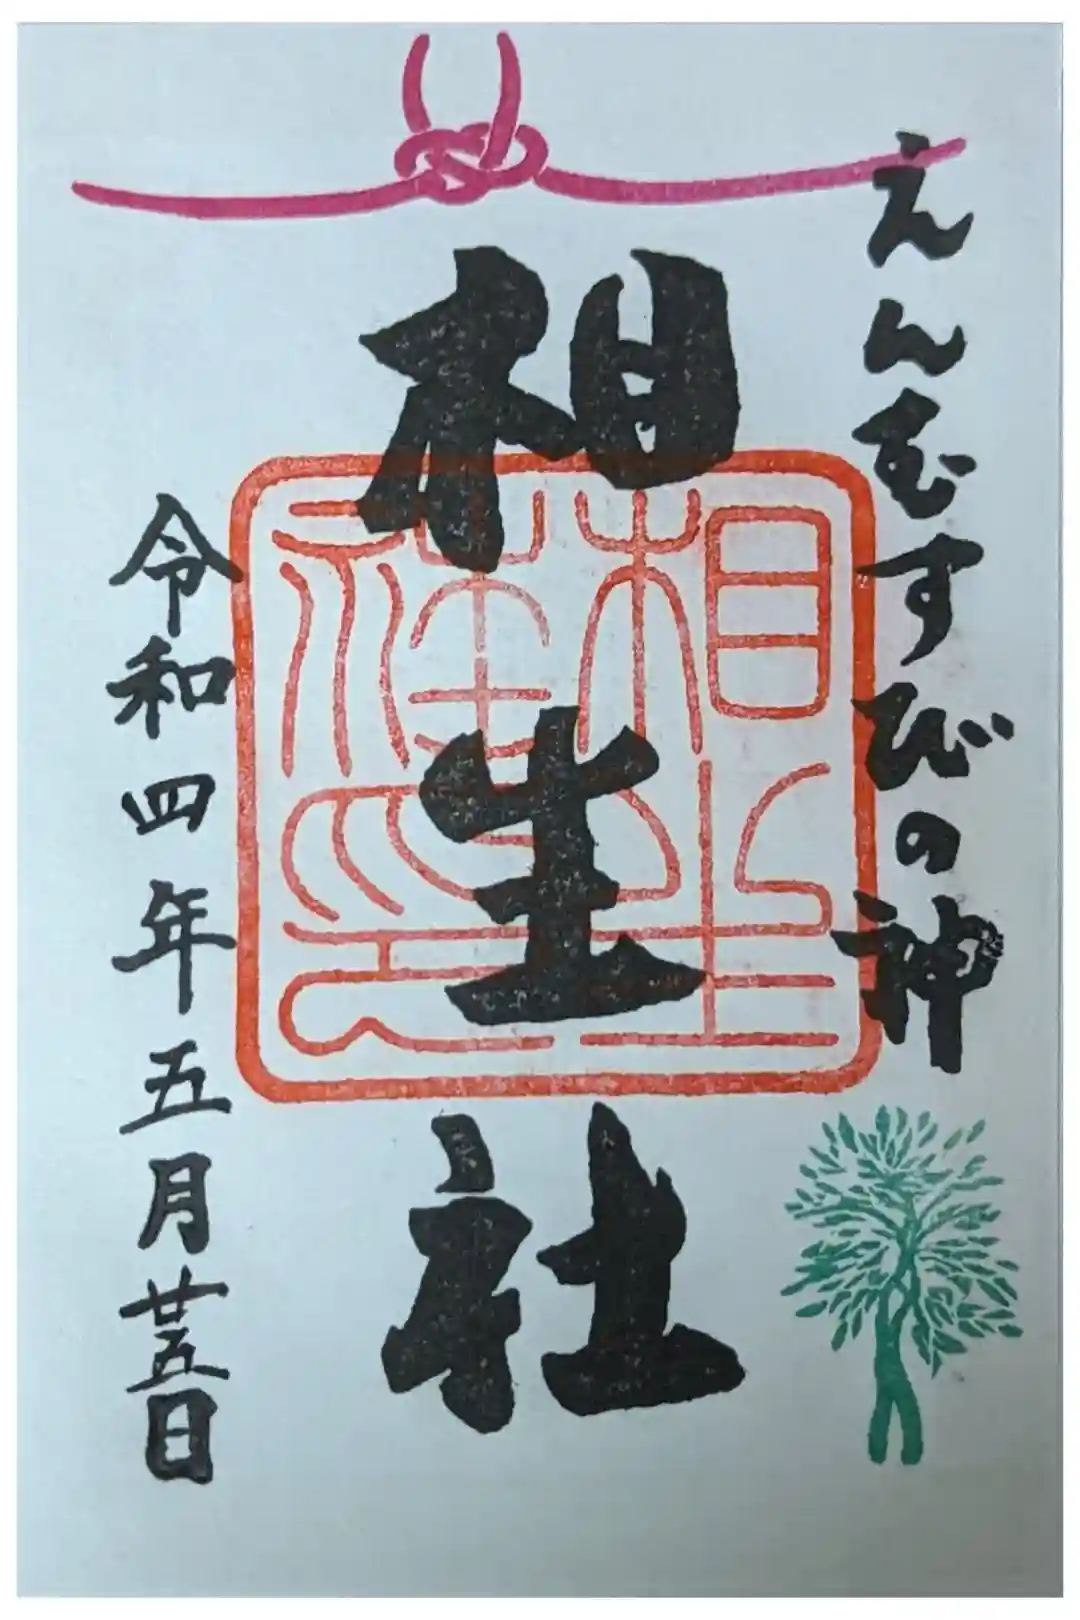 えんむすびの神
相生社
令和四年五月廿五日